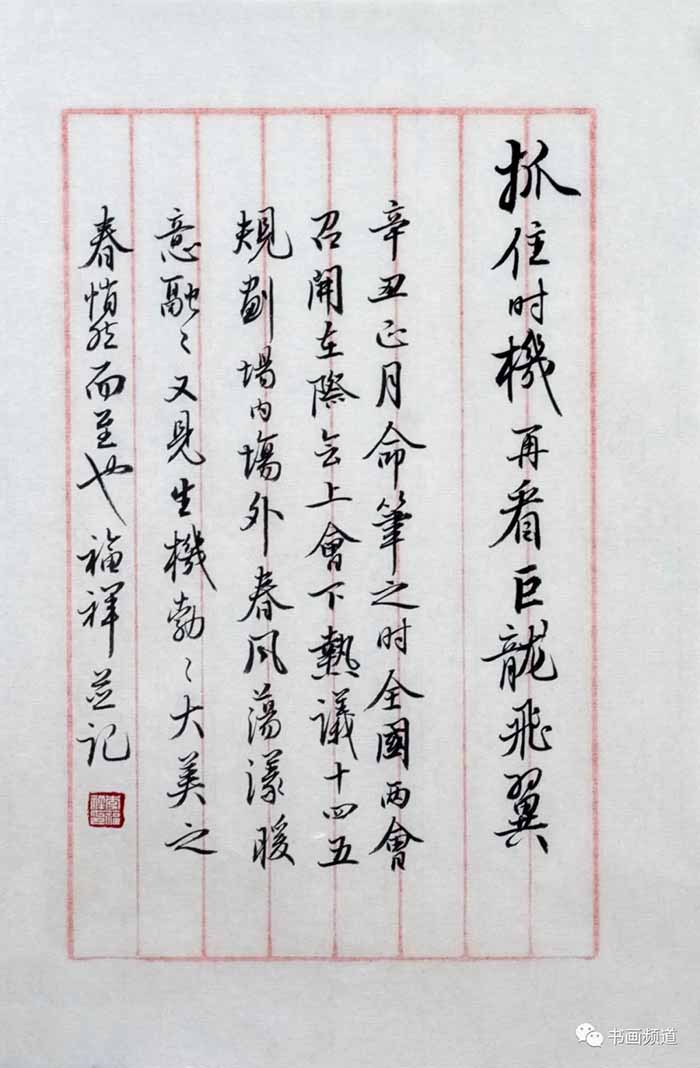 抓住时機再看巨龍飛翼
辛丑正月命筆之时全國两會
召開在際会上會下熱議十四五
規劃場内塲外春风蕩漾暖
意融〻又見生機勃〻大美之
春悄然而至也福祥並记
书画频道